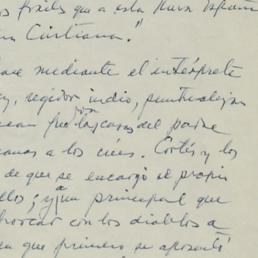 os frailes que a esta Nueva España
Cristiana."
mediante el intérprete
regidor indio,
las casas del padre
a los cíes. Cortés y los
de que se encargó el propio
ellos; y a un principal que
ahorcar con los diablos a
en que primero se aposentó